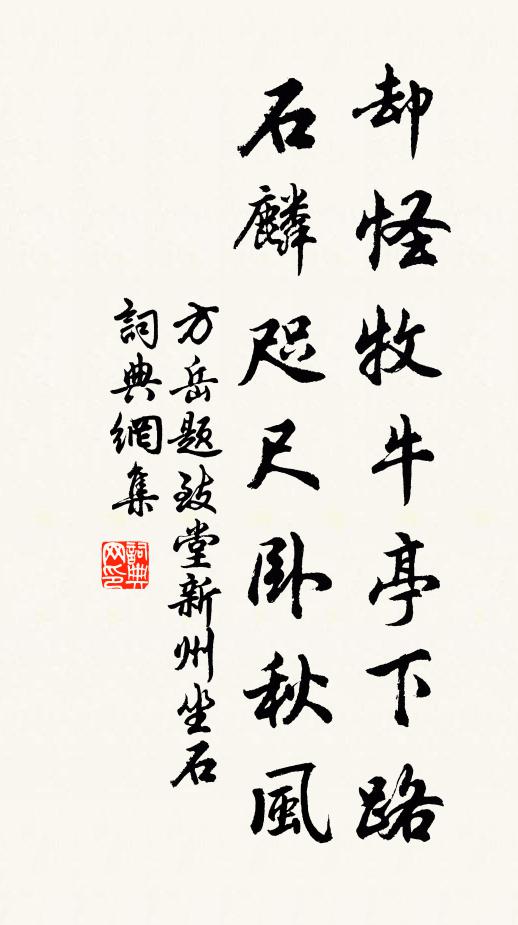 却怪牧牛亭下路
石麟咫尺卧秋風
方岳題致堂新州坐石
詞典網集
詞典網印